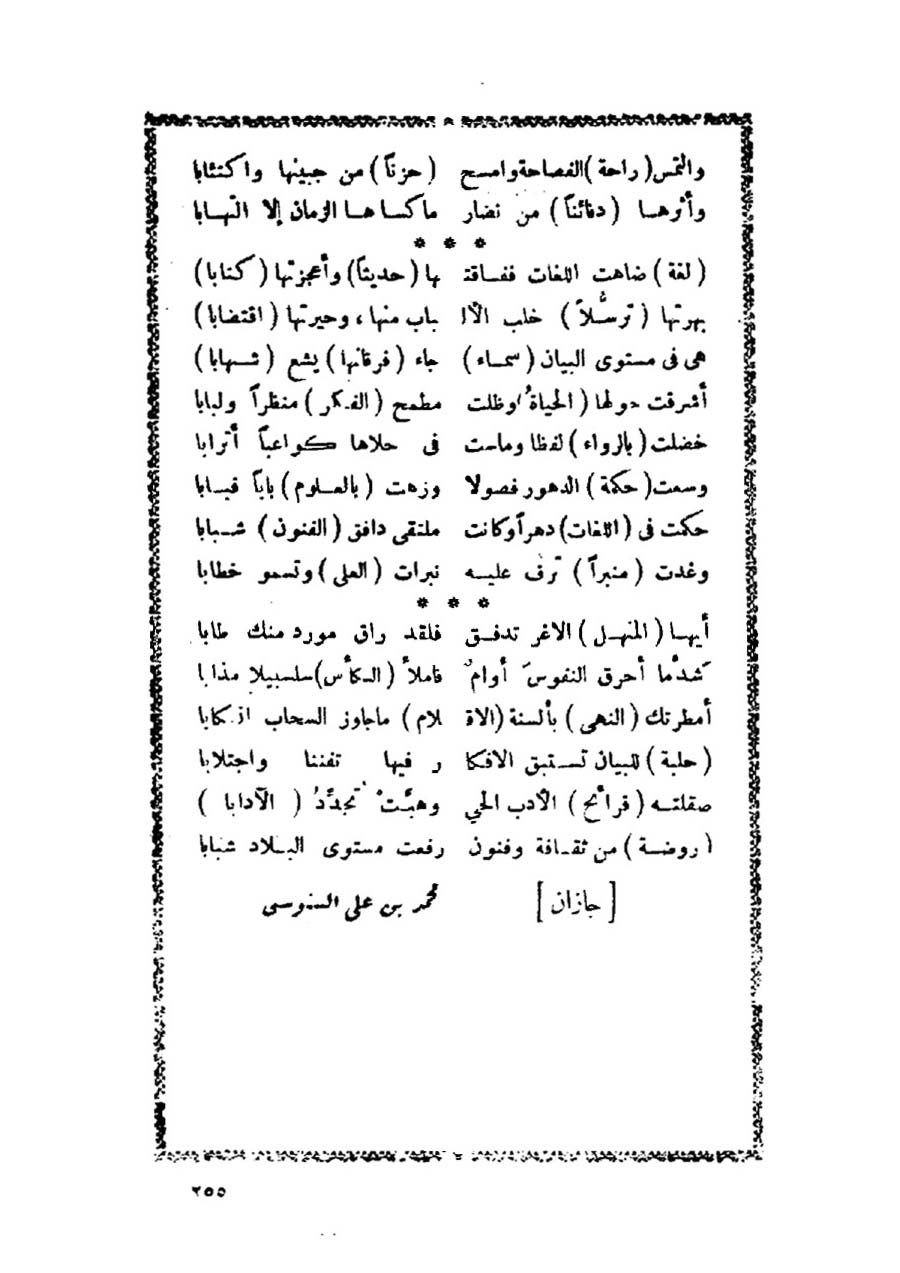 والتمس (راحة) الفصاحة وامسح (حزناً) من جبينها واكتئابا
وأثرها (دفائناً) من نضار ما كساها الزمان إلا التهابا
* * *
(لغة) ضاهت اللغات ففاقتـ ـها (حديثاً) وأعجزتها (كتابا)
بهرتها (ترسُّلاً) خلب الألـ ـباب منها، وحيرتها (اقتضابا)
هى فى مستوى البيان (سماء) جاء (فرقانها) يشع (شهابا)
أشرقت حولها (الحياةُ) وظلت مطمح (الفكر) منظراً ولبابا
خضلت (بالرواء) لفظا وماست فى حلاها كواعباً أترابا
وسعت (حكمة) الدهور فصولا وزهت (بالعلوم) باباً فبابا
حكمت فى (اللغات) دهراً وكانت ملتقى دافق (الفنون) شبابا
وغدت (منبراً) ترف عليه نبرات (العلى) وتسمو خطابا
* * *
أيها (المنهل) الاغر تدفق فلقد راق مورد منك طابا
شدَّما أحرق النفوسَ أوامٌ فاملأ (الكأس) سلسبيلا مذابا
أمطرتك (النهى) بألسنة (الاقـ ـلام) ما جاوز السحاب انسكابا
(حلبة) للبيان تستبق الافكا ر فيها تفننا واجتلابا
صقلته (قرائح) الأدب الحي وهبَّتْ تجدِّدُ (الآدابا)
(روضة) من ثقافة وفنون رفعت مستوى البلاد شبابا
[جازان] محمد بن على السنوسى
٢٥٥